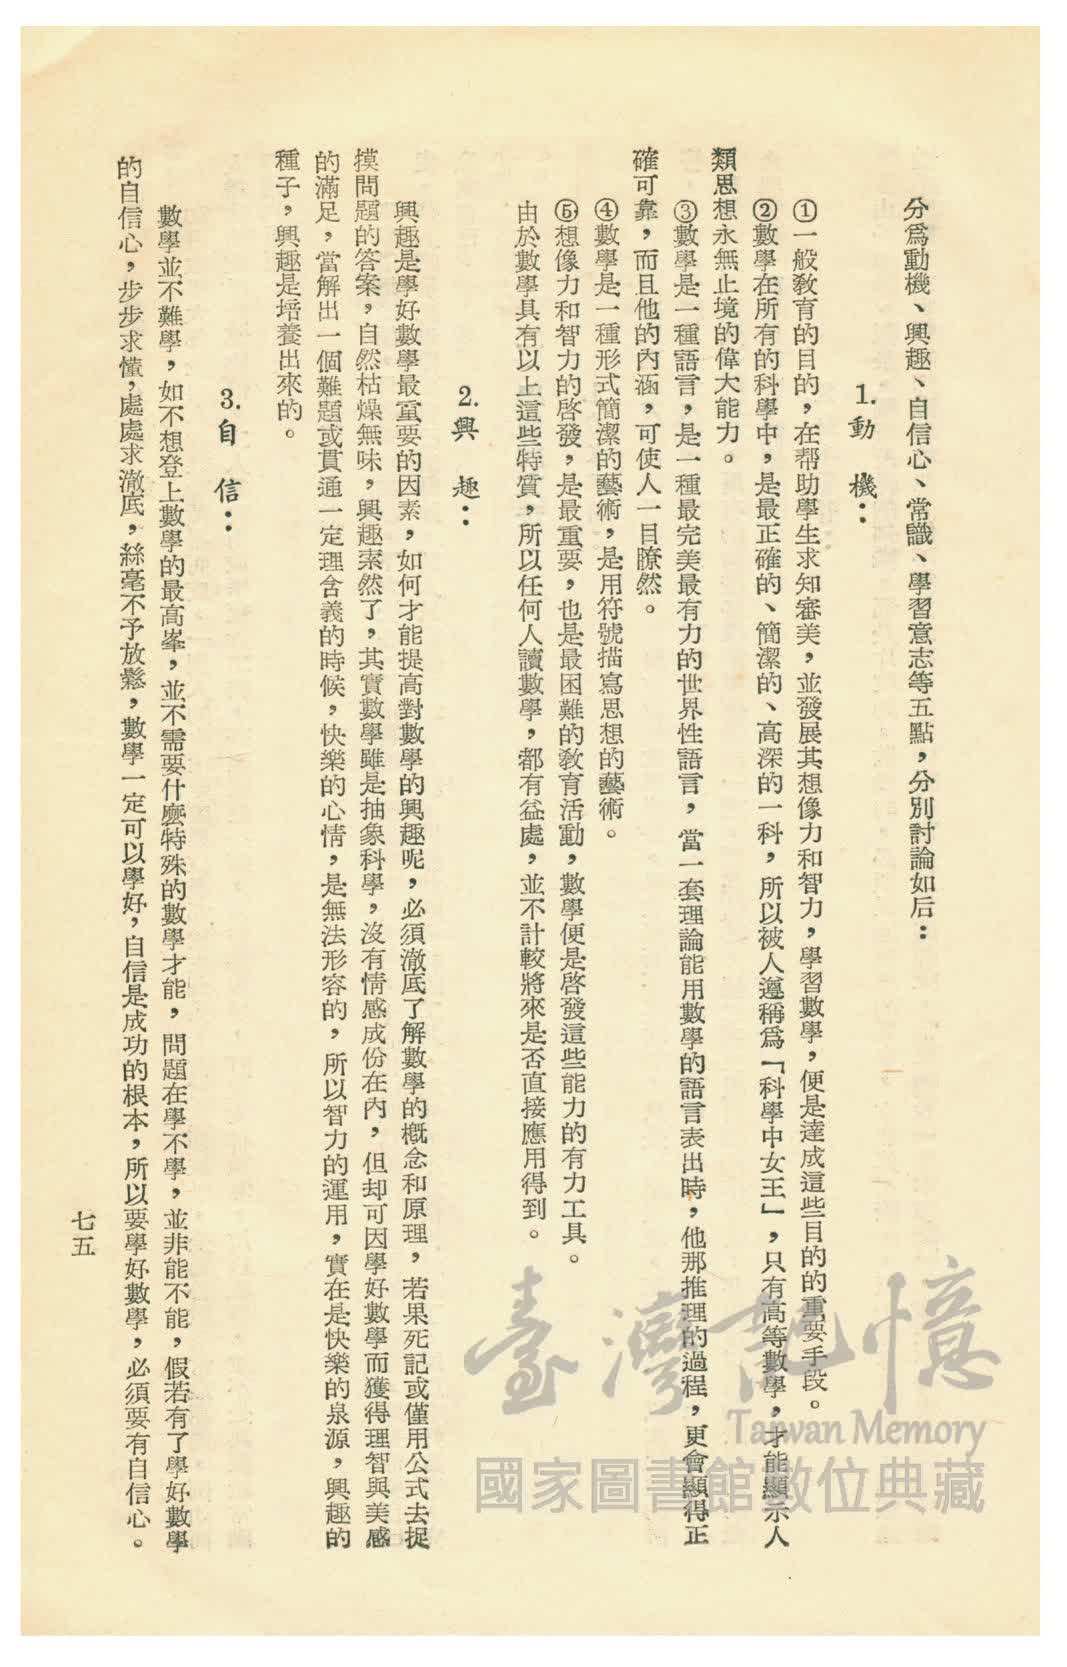 分爲動機、興趣、自信心、常識、學習意志等五點，分別討論如后：
1.動　機：
①一般敎育的目的，在帮助學生求知審美，並發展其想像力和智力，學習數學，便是達成這些目的的重要手段。
②數學在所有的科學中，是最正確的、簡潔的、高深的一科，所以被人遵稱爲「科學中女王」，只有高等數學，才能顯示人
類思想永無止境的偉大能力。
③數學是一種語言，是一種最完美最有力的世界性語言，當一套理論能用數學的語言表出時，他那推理的過程，更會顯得正
確可靠，而且他的內涵，可使人一目瞭然。
④數學是一種形式簡潔的藝術，是用符號描寫思想的藝術。
⑤想像力和智力的啓發，是最重要，也是最困難的敎育活動，數學便是啓發這些能力的有力工具。
由於數學具有以上這些特質，所以任何人讀數學，都有益處，並不計較將來是否直接應用得到。
2.興　趣：
興趣是學好數學最重要的因素，如何才能提高對數學的興趣呢，必須澈底了解數學的槪念和原理，若果死記或僅用公式去捉
摸問題的答案，自然枯燥無味，興趣索然了，其實數學雖是抽象科學，沒有情感成份在內，但却可因學好數學而獲得理智與美感
的滿足，當解出一個難題或貫通一定理含義的時候，快樂的心情，是無法形容的，所以智力的運用，實在是快樂的泉源，興趣的
種子，興趣是培養出來的。
3.自　信：
數學並不難學，如不想登上數學的最高峯，並不需要什麼特殊的數學才能，問題在學不學，並非能不能，假若有了學好數學
的自信心，步步求懂，處處求澈底，絲毫不予放鬆，數學一定可以學好，自信是成功的根本，所以要學好數學，必須要有自信心。
七五
臺灣記憶
Taiwan Memory
國家圖書館數位典藏